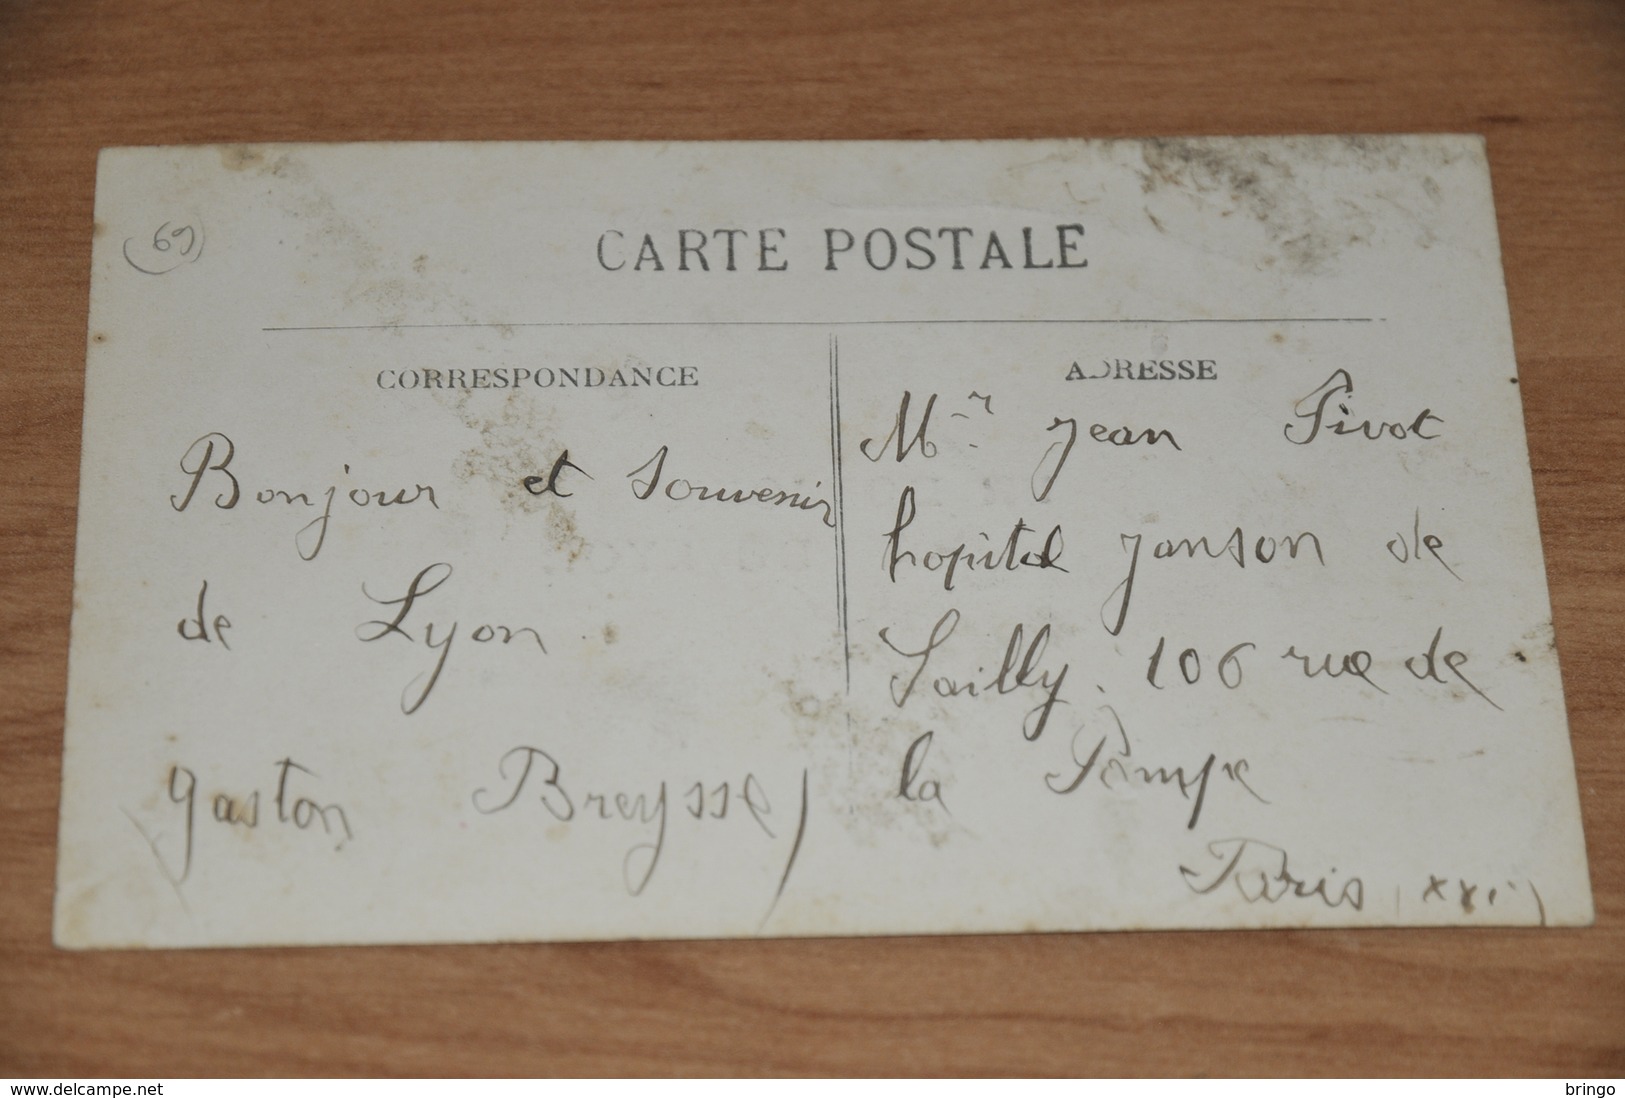 (69)
CARTE POSTALE
CORRESPONDANCE
Bonjour et Souvenir
de Lyon
gaston Breysse
ADRESSE
Mr Jean Pivot
hopital Janson de
Sailly. 106 rue de
la Pompe
Paris (xvi)
www.delcampe.net
bringo